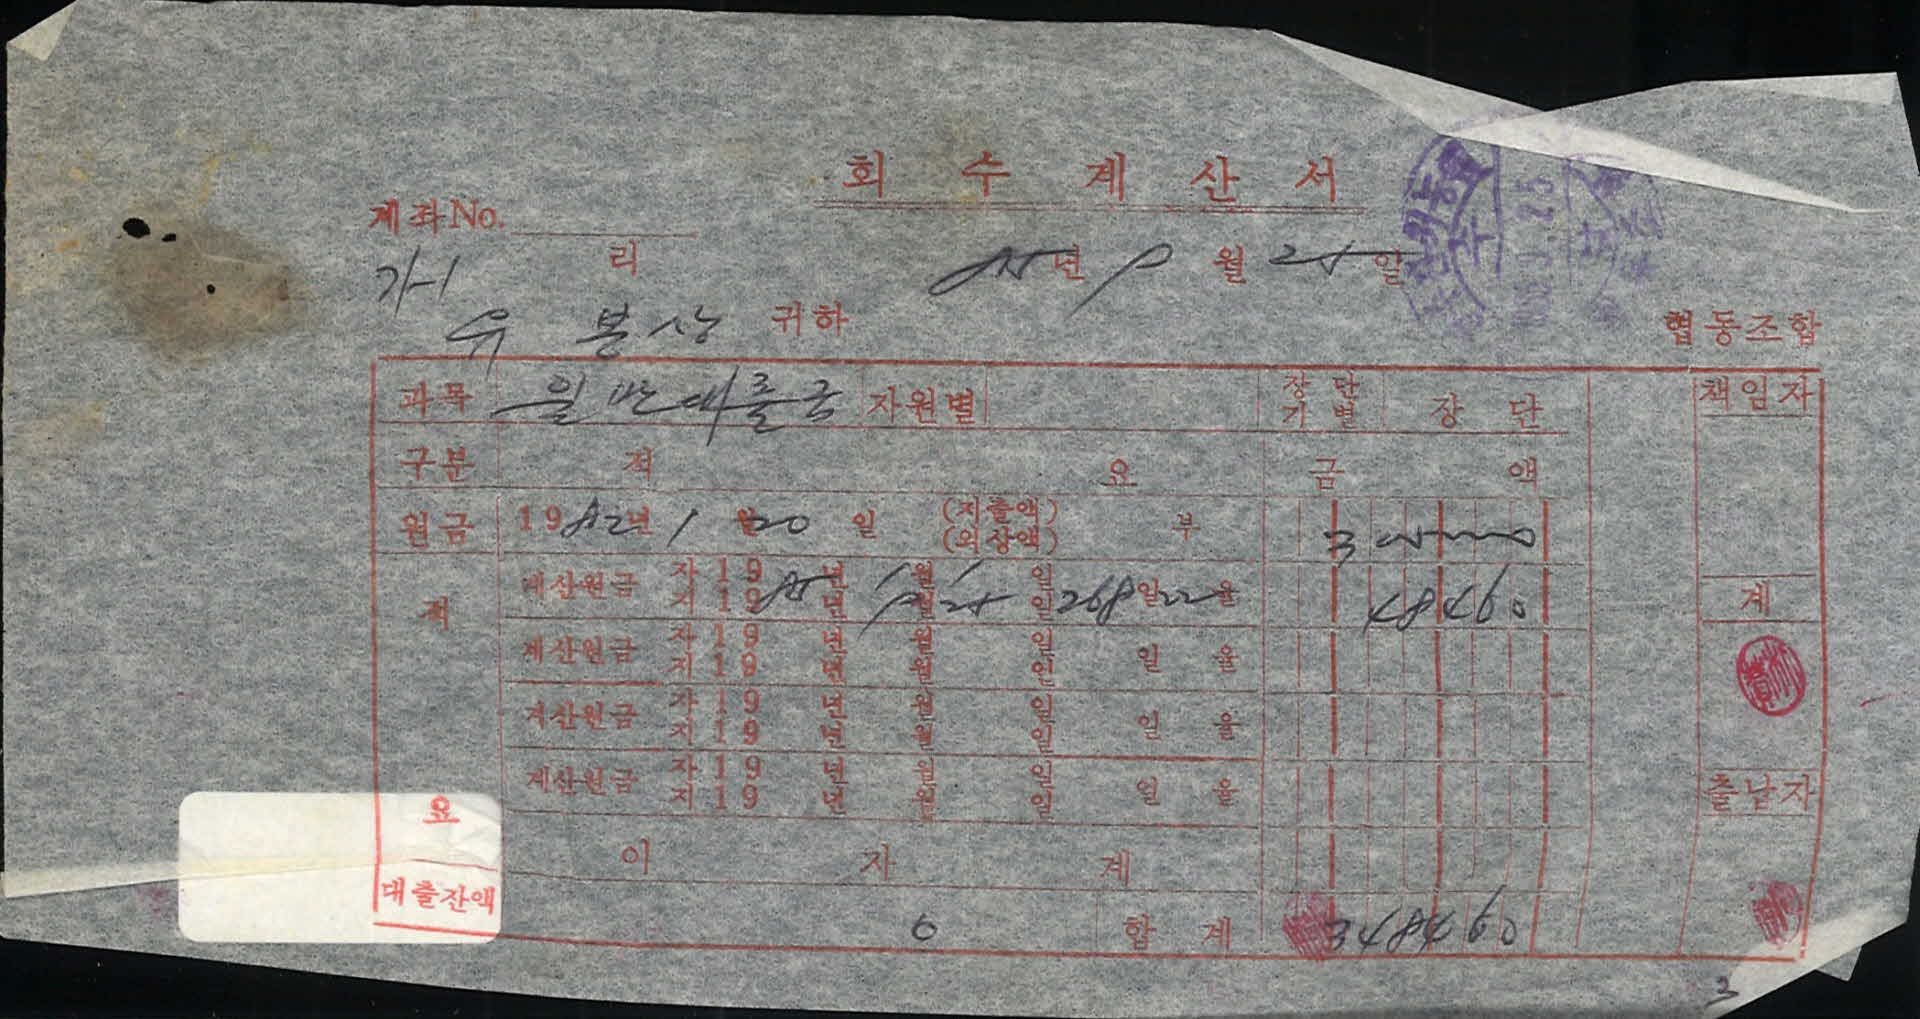 회 수 계 산 서
계좌No.
가-1 리
년 9 월 25 일
유 봉상 귀하
협동조합
과목 일반대출금 자원별 장단기별 장 단 책임자
구분 적 요 금 액
원금 1982년 1 월 20 일 (지출액)(외상액) 부 300000
적 계산원금 자19 년 월 일 지19 년 9월 25일 268일 22율 48460 계
계산원금 자19 년 월 일 지19 년 월 일 일 율
계산원금 자19 년 월 일 지19 년 월 일 일 율
계산원금 자19 년 월 일 지19 년 월 일 일 율 출납자
요
이 자 계
대출잔액 0 합 계 348460
3